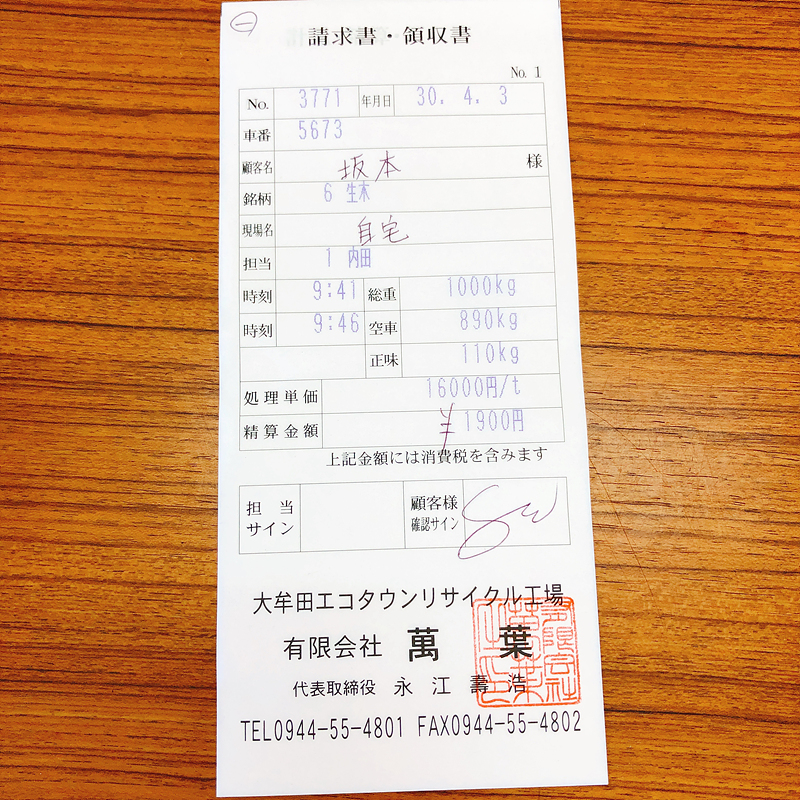 ㊀
請求書・領収書
No. 1
No. 3771 年月日 30. 4. 3
車番 5673
顧客名 坂本 様
銘柄 6 生木
現場名 自宅
担当 1 内田
時刻 9:41 総重 1000kg
時刻 9:46 空車 890kg
正味 110kg
処理単価 16000円/t
精算金額 ¥1900円
上記金額には消費税を含みます
担当 サイン 顧客様 確認サイン
大牟田エコタウンリサイクル工場
有限会社 萬葉
代表取締役 永江壽浩
TEL0944-55-4801 FAX0944-55-4802